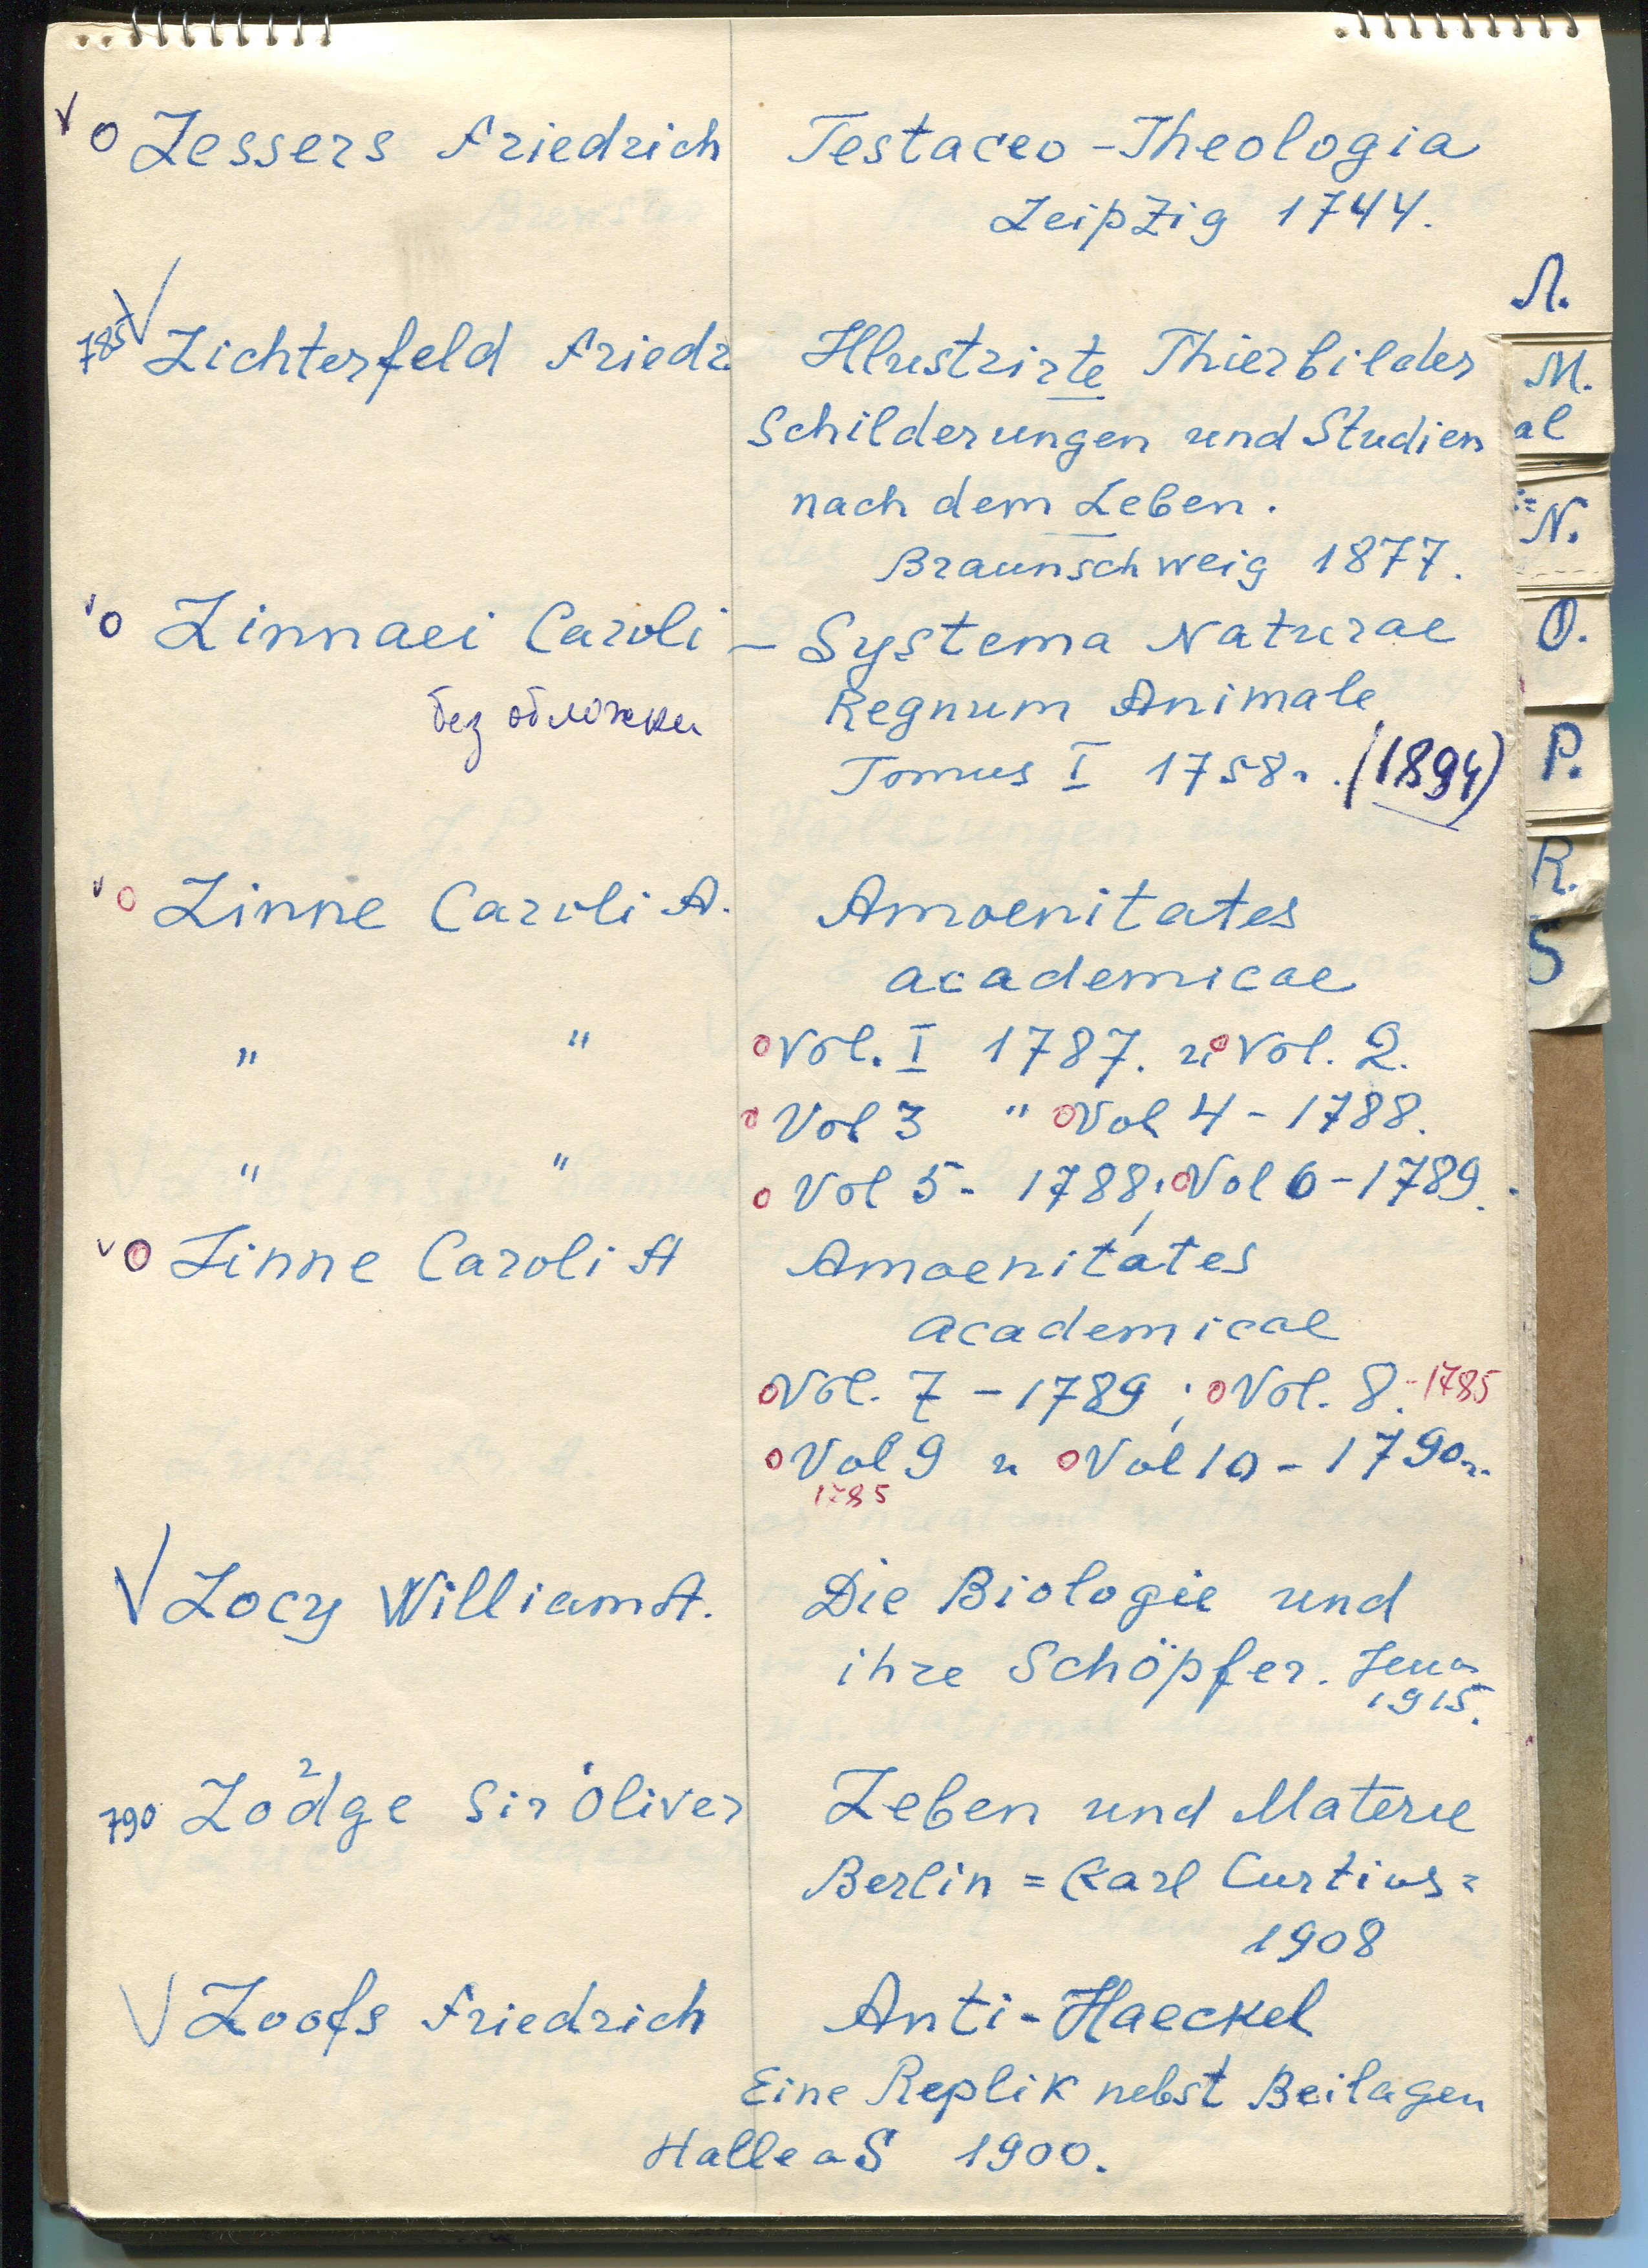 V o Lessers Friedrich Testaceo-Theologia
Leipzig 1744.
Л.
785 V Lichterfeld Friedr Illustrirte Thierbilder
M.
Schilderungen und Studien
al
nach dem Leben.
N.
Braunschweig 1877.
v o Linnaei Caroli – Systema Naturae
O.
без обложки Regnum Animale
Tomus I 1758г. (1894)
P.
R.
v o Linne Caroli A. Amoenitates
S
academicae
" " o Vol. I 1787. и o Vol. 2.
o Vol 3 " o Vol 4 - 1788.
" " o Vol 5 - 1788; o Vol 6 - 1789.
v o Linne Caroli A Amoenitates
academicae
o Vol. 7 - 1789; o Vol. 8. - 1785
o Vol 9 и o Vol 10 - 1790г.
1785
V Locy William A. Die Biologie und
ihre Schöpfer. Jena
1915.
790 Lodge Sir Oliver Leben und Materie
2
Berlin = Karl Curtius =
1908
V Loofs Friedrich Anti-Haeckel
Eine Replik nebst Beilagen
Halle a S 1900.